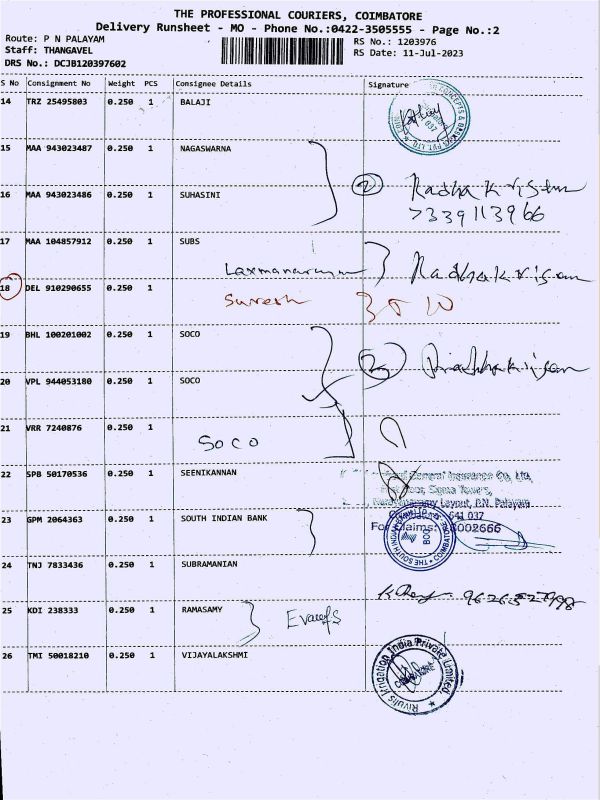 THE PROFESSIONAL COURIERS, COIMBATORE
Delivery Runsheet - MO - Phone No.:0422-3505555 - Page No.:2
Route: P N PALAYAM
RS No.: 1203976
Staff: THANGAVEL
RS Date: 11-Jul-2023
DRS No.: DCJB120397602
S No Consignment No Weight PCS Consignee Details Signature
14 TRZ 25495803 0.250 1 BALAJI
037
15 MAA 943023487 0.250 1 NAGASWARNA
2 Radhakrishn
16 MAA 943023486 0.250 1 SUHASINI
7339113966
17 MAA 104857912 0.250 1 SUBS
Laxmanarayan Radhakrisan
18 DEL 910290655 0.250 1
Suresh
19 BHL 100201002 0.250 1 SOCO
2
20 VPL 944053180 0.250 1 SOCO
21 VRR 7240876 0.250 1
SOCO
22 SPB 50170536 0.250 1 SEENIKANNAN
General Insurance Co, Ltd,
Floor, Sigma Towers,
Layout, P.N. Palayam
641 037
23 GPM 2064363 0.250 1 SOUTH INDIAN BANK
For Claims: 8002666
THE SOUTH INDIAN COIMBATORE
24 TNJ 7833436 0.250 1 SUBRAMANIAN
25 KDI 238333 0.250 1 RAMASAMY
26 TMI 50018210 0.250 1 VIJAYALAKSHMI
Rivulis Irrigation India Private Limited